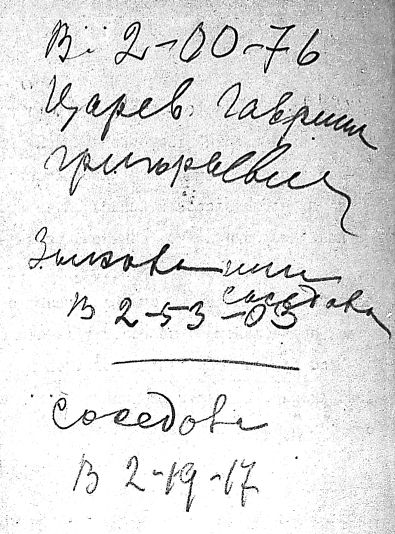 В: 2-00-76
Царев Гавриил
Григорьевич
Зыкова или
Соседова
В 2-53-03
Соседова
В 2-19-17